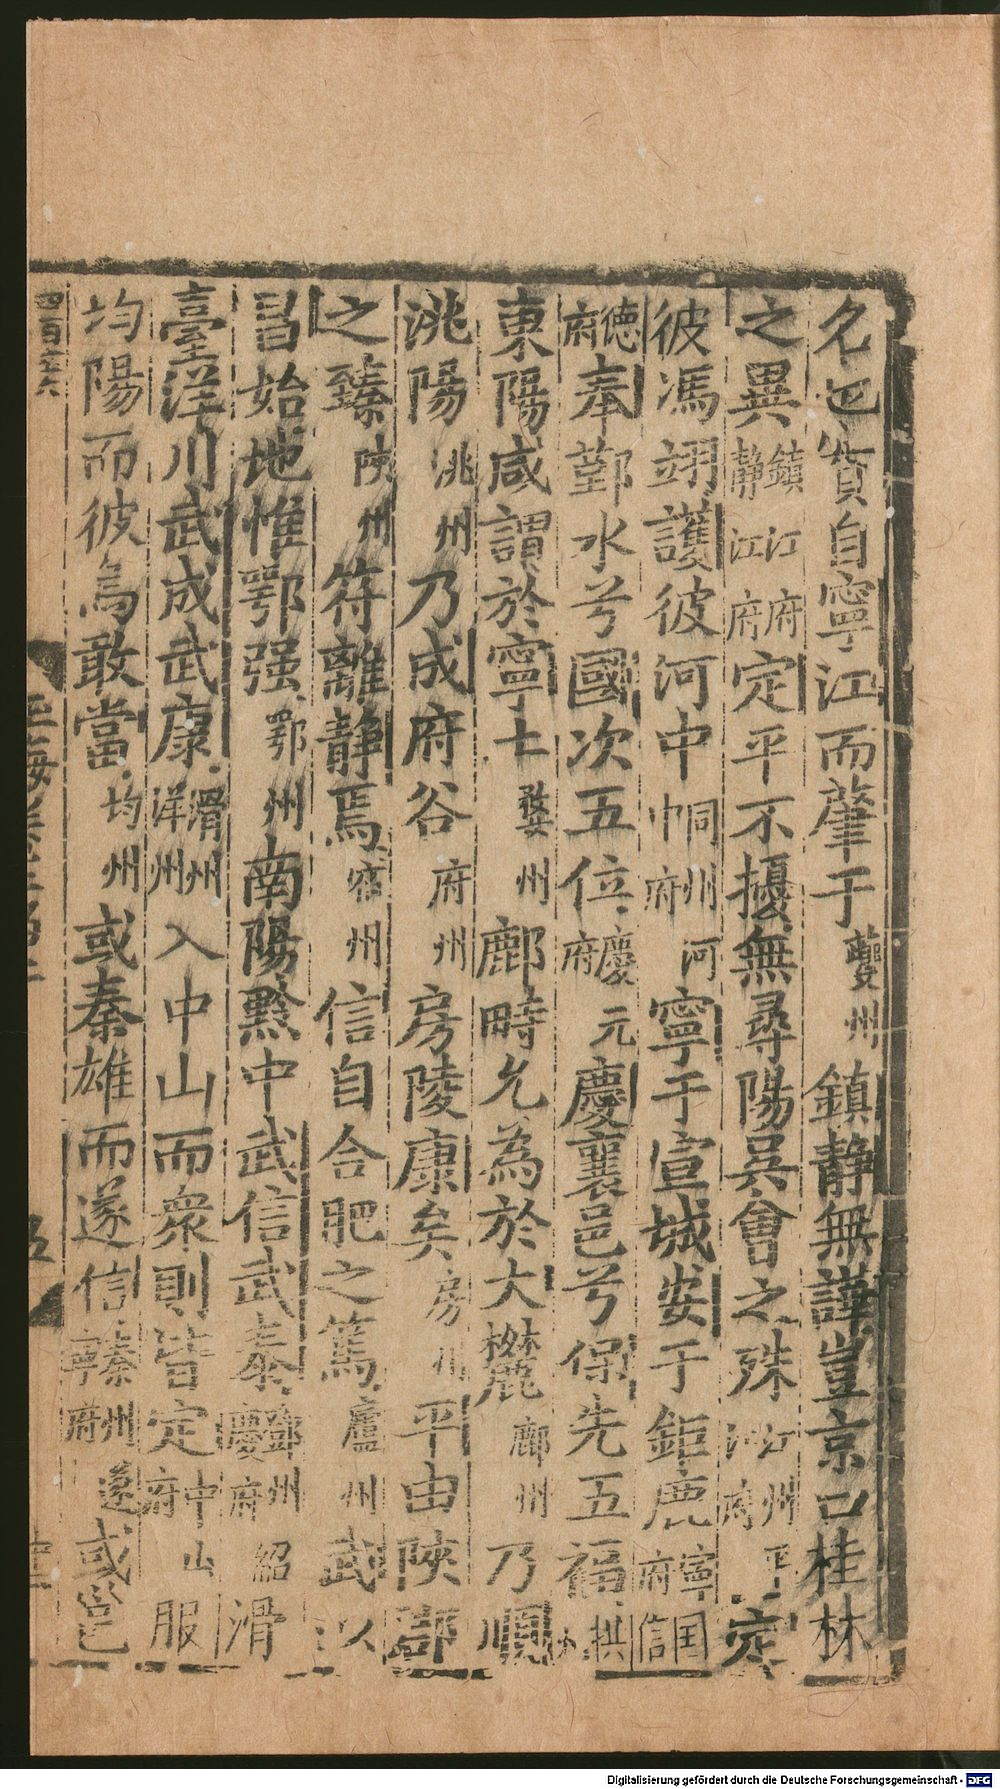 名已實自寧江而肇于夔州鎮靜無譁豈京口桂林
之異鎮江府靜江府定平不擾無尋陽吳會之殊江州平江府定
彼馮翊護彼河中同州河中府寧于宣城安于鉅鹿寧国府信
德府奉鄞水兮國次五位慶元府慶襄邑兮保先五福拱州
東陽咸謂於寧士婺州鄜畤允為於大麓鄜州乃順
洮陽洮州乃成府谷府州房陵康矣房州平由陝郡
之臻陝州符離靜焉宿州信自合肥之篤廬州武以
昌始地惟鄂强鄂州南陽黔中武信武泰鄧州紹慶府滑
臺洋川武成武康滑州洋州入中山而衆則皆定中山府服
均陽而彼焉敢當均州或秦雄而遂信秦州寧府遂或邕
四百六十六
玉海卷
五
Digitalisierung gefördert durch die Deutsche Forschungsgemeinschaft - DFG